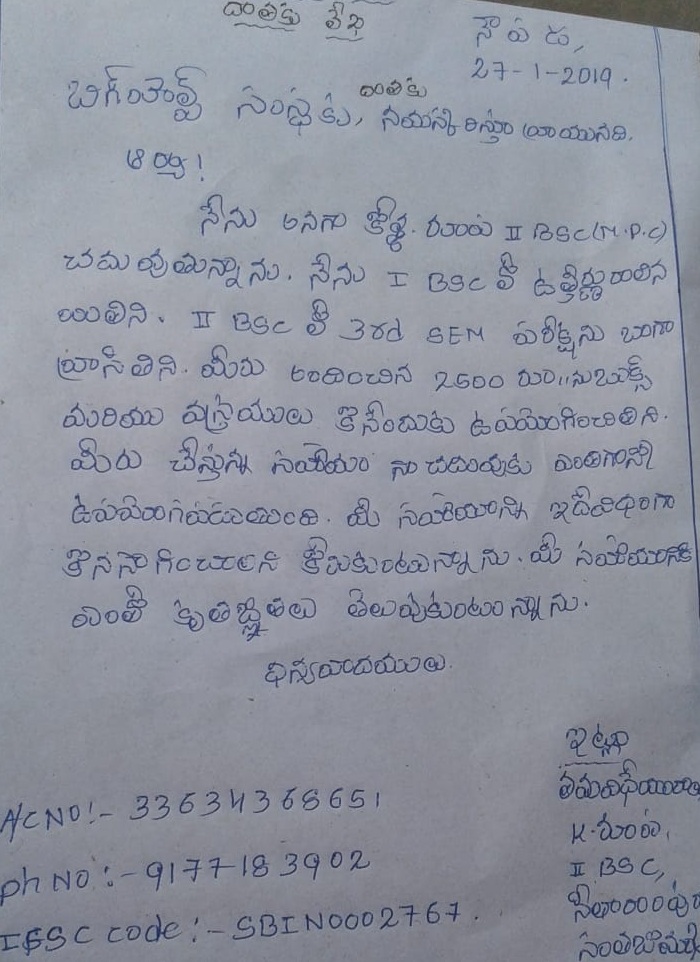 దాతకు లేఖ
నౌపడ,
27-1-2019.
దాతకు
బిగ్ హెల్ప్ సంస్థకు, నమస్కరిస్తూ వ్రాయునది.
ఆర్యా!
నేను అనగా II BSC(M.P.C)
చదువుతున్నాను. నేను I BSC లో ఉత్తీర్ణురాలిన
యితిని. II BSC లో 3rd SEM పరీక్షను బాగా
వ్రాసితిని. మీరు అందించిన 2500 రూ॥ను బుక్స్
మరియు వస్త్రములు కొనేందుకు ఉపయోగించితిని.
మీరు చేస్తున్న సహాయం నా చదువుకు ఎంతగానో
ఉపయోగపడుతుంది. మీ సహాయాన్ని ఇదేవిధంగా
కొనసాగించాలని కోరుకుంటున్నాను. మీ సహాయానికి
ఎంతో కృతజ్ఞతలు తెలుపుకుంటున్నాను.
ధన్యవాదములు.
ఇట్లు
తమవిధేయురాలు
K.
II BSC,
A/C NO:- 33634368651
ph NO:- 9177183902
IFSC code:- SBIN0002767.